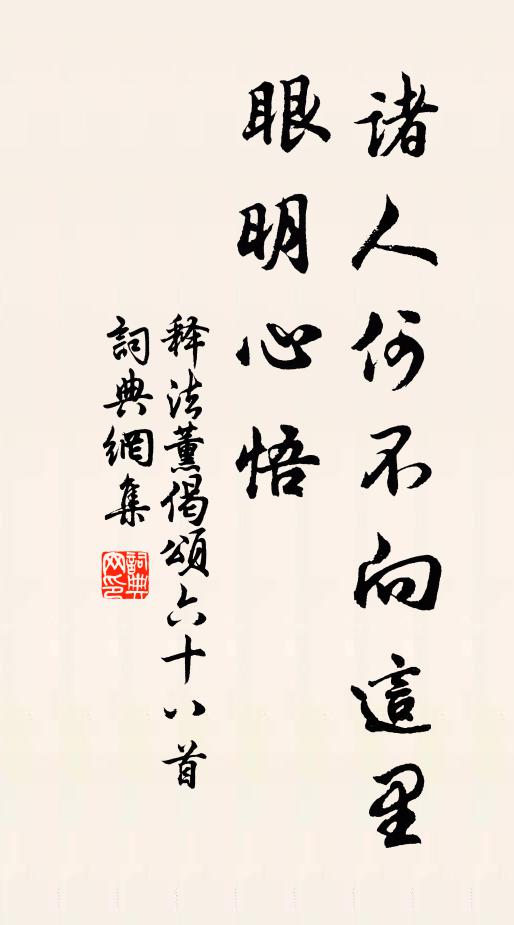 諸人何不向這里
眼明心悟
释法薰偈頌六十八首
詞典網集
詞典網印